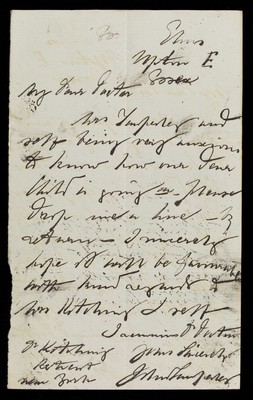 Elms
Upton E
Essex
My Dear Doctor
Mrs and
self being very anxious
to know how our dear
Child is going on - please
drop me a line - by
return - I sincerely
hope it will be
with kind regards to
Mrs Kitching & self
I remain Dr Doctor
Dr Kitching Yours Sincerely
Retreat John
near York